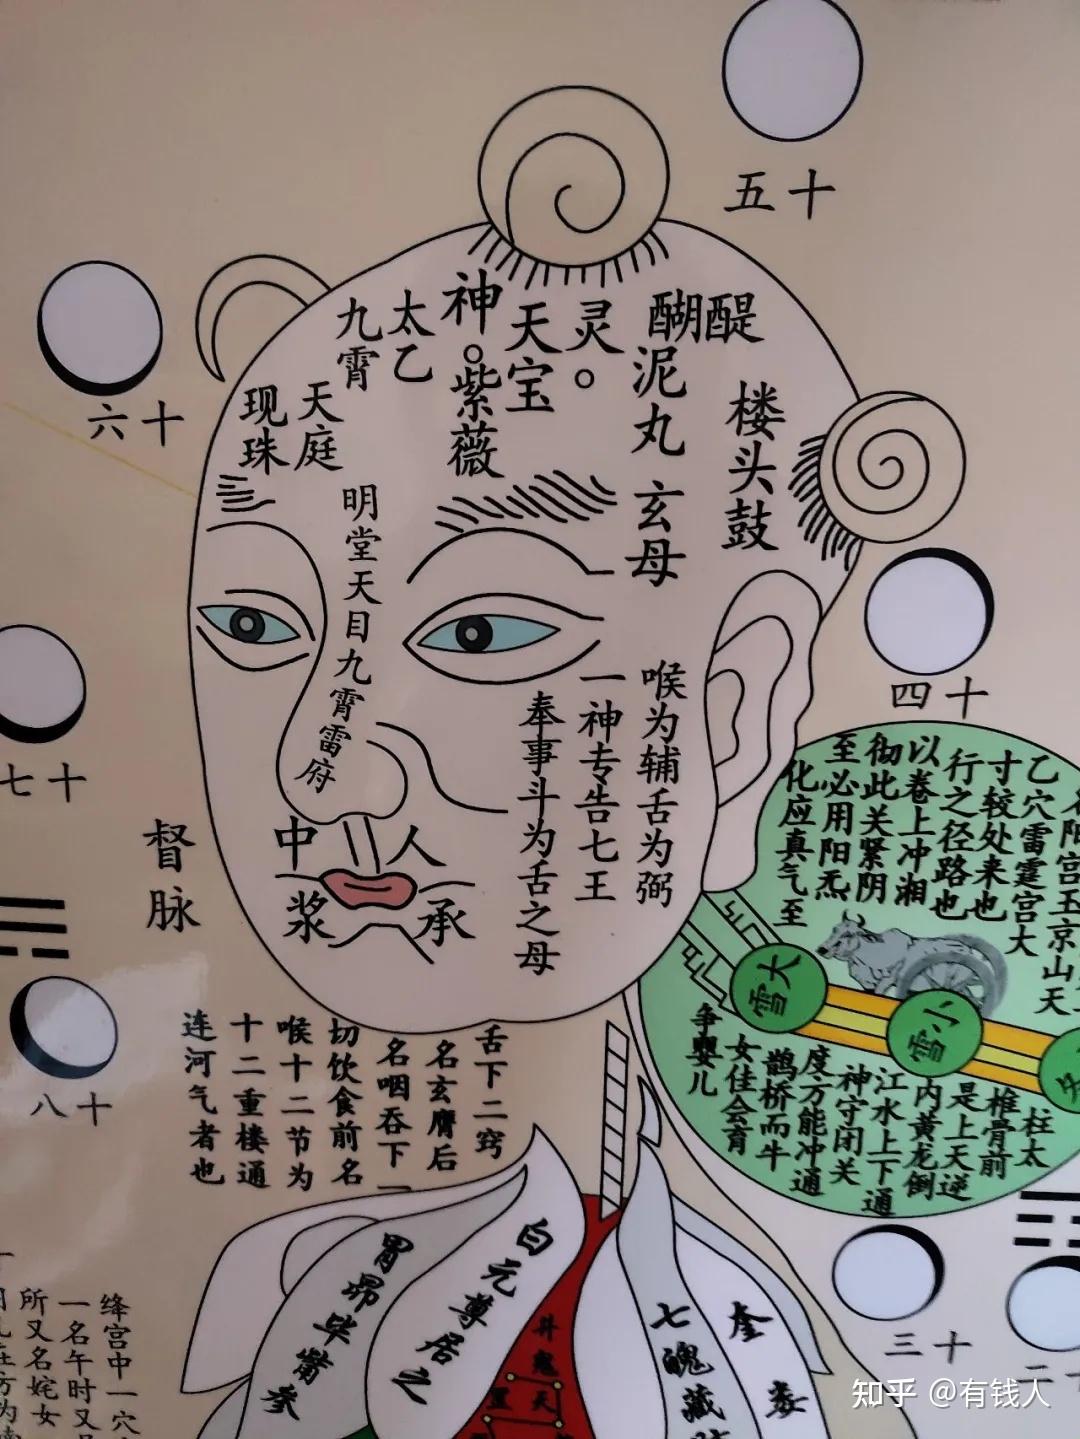 五十
六十
七十
八十
四十
三十
神。紫薇
太乙
九霄
天宝
灵。
醍醐
泥丸
玄母
楼头鼓
现珠
天庭
明堂天目九霄雷府
喉为辅舌为弼
一神专告七王
奉事斗为舌之母
人中
承浆
督脉
乙穴雷霆宫大
寸较处来也
行之径路也
以卷上冲湘
彻此关紧阴
至必用阳炁
化应真气至
大雪
小雪
柱太
椎骨前
是上天逆
内黄龙倒
江水上下通
神守闭关
度方能冲通
鹊桥而牛
女佳会育
争婴儿
舌下二窍
名玄膺后
名咽吞下一
切饮食前名
喉十二节为
十二重楼通
连河气者也
白元尊居之
胃昴毕觜参
七魄藏
奎
娄
绛宫中一穴
一名午时又
所又名姹女
知乎 @有钱人